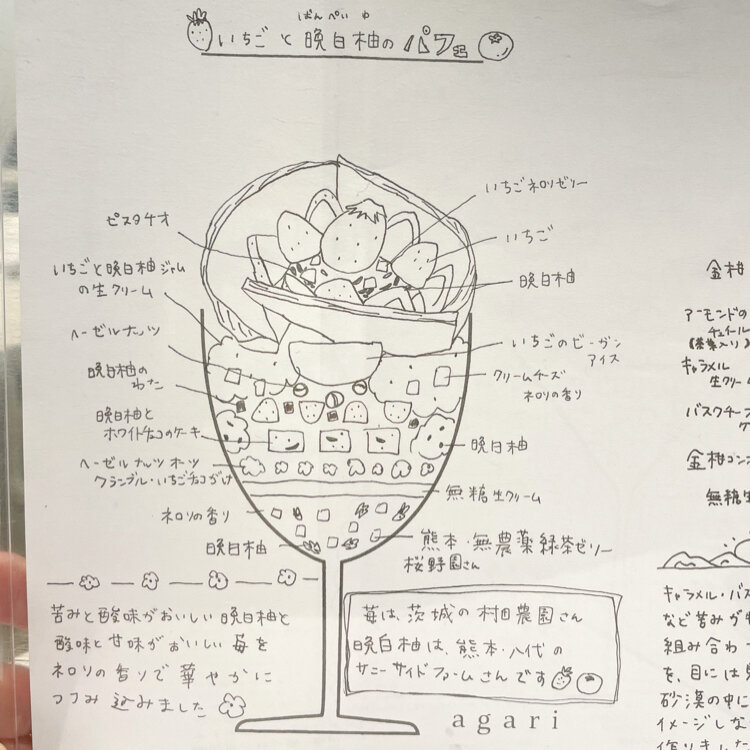 ばんぺいゆ
いちごと晩白柚のパフェ
ピスタチオ
いちごと晩白柚ジャム
の生クリーム
ヘーゼルナッツ
晩白柚の
わた
晩白柚と
ホワイトチョコのケーキ
ヘーゼルナッツオーツ
クランブル・いちごチョコがけ
ネロリの香り
晩白柚
いちごネロリゼリー
いちご
晩白柚
いちごのビーガン
アイス
クリームチーズ
ネロリの香り
晩白柚
無糖生クリーム
熊本・無農薬緑茶ゼリー
桜野園さん
苦みと酸味がおいしい晩白柚と
酸味と甘味がおいしい苺を
ネロリの香りで華やかに
つつみ込みました
苺は、茨城の村田農園さん
晩白柚は、熊本・八代の
サニーサイドファームさんです
agari
金柑
アーモンドの
チュイール
(茶葉入り)
キャラメル
生クリーム
バスクチーズ
ケ
金柑コン
無糖生
キャラメル・バス
など苦みが
組み合わ
を、目には
砂漠の中に
イメージしな
作りました